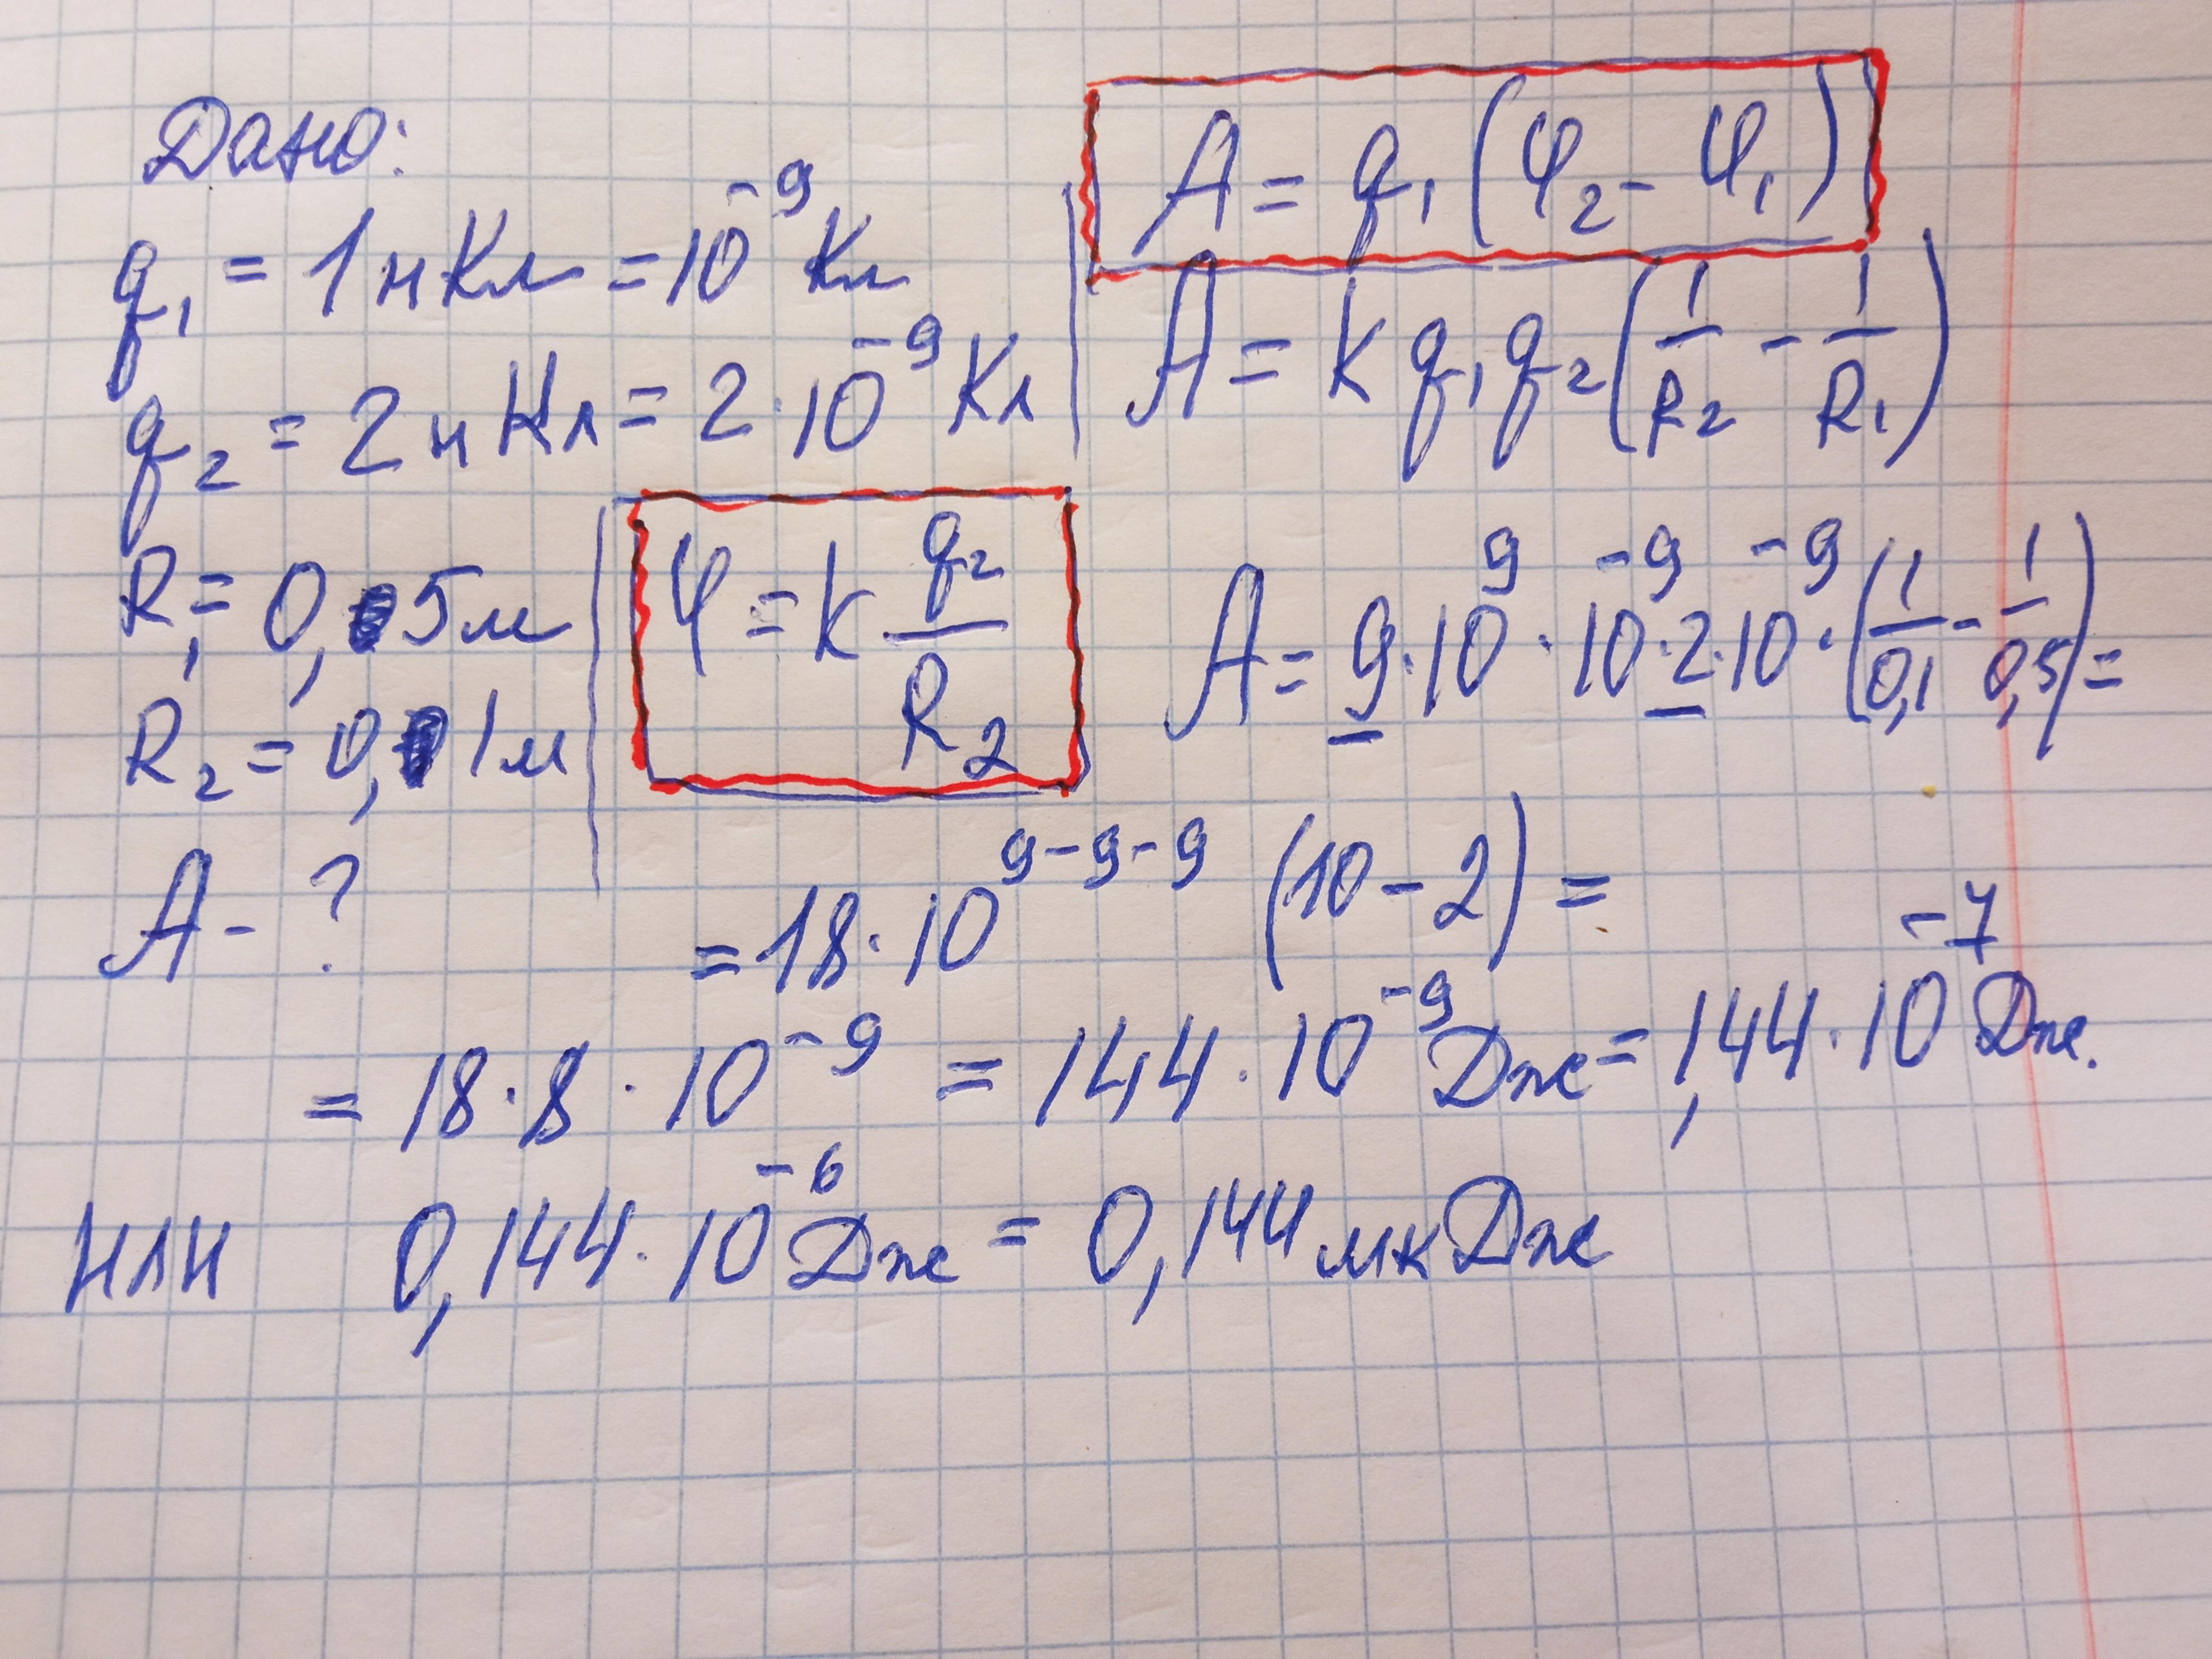 Дано:
q₁ = 1 нКл = 10⁻⁹ Кл
q₂ = 2 нКл = 2·10⁻⁹ Кл
R₁ = 0,5 м
R₂ = 0,1 м
A - ?
φ = k q₂/R₂
A = q₁(φ₂ - φ₁)
A = k q₁ q₂ (1/R₂ - 1/R₁)
A = 9·10⁹ · 10⁻⁹ · 2·10⁻⁹ · (1/0,1 - 1/0,5) =
= 18·10⁹⁻⁹⁻⁹ (10 - 2) =
= 18·8·10⁻⁹ = 144·10⁻⁹ Дж = 1,44·10⁻⁷ Дж.
или 0,144·10⁻⁶ Дж = 0,144 мкДж